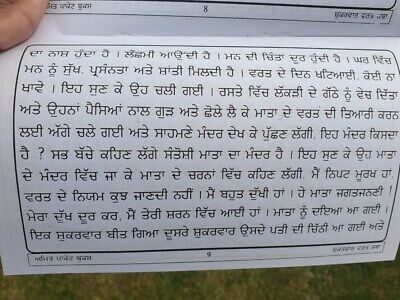 ਅਮਿਤ ਪਾਕੇਟ ਬੁਕਸ 8 ਸ਼ੁਕਰਵਾਰ ਵਰਤ ਕਥਾ
ਦਾ ਨਾਸ਼ ਹੁੰਦਾ ਹੈ । ਲੱਛਮੀ ਆਉਂਦੀ ਹੈ । ਮਨ ਦੀ ਚਿੰਤਾ ਦੂਰ ਹੁੰਦੀ ਹੈ । ਘਰ ਵਿੱਚ
ਮਨ ਨੂੰ ਸੁੱਖ, ਪ੍ਰਸੰਨਤਾ ਅਤੇ ਸ਼ਾਂਤੀ ਮਿਲਦੀ ਹੈ । ਵਰਤ ਦੇ ਦਿਨ ਖਟਿਆਈ, ਕੋਈ ਨਾ
ਖਾਵੇ । ਇਹ ਸੁਣ ਕੇ ਉਹ ਚਲੀ ਗਈ । ਰਸਤੇ ਵਿੱਚ ਲੱਕੜੀ ਦੇ ਗੱਠੇ ਨੂੰ ਵੇਚ ਦਿੱਤਾ
ਅਤੇ ਉਹਨਾਂ ਪੈਸਿਆਂ ਨਾਲ ਗੁੜ ਅਤੇ ਛੋਲੇ ਲੈ ਕੇ ਮਾਤਾ ਦੇ ਵਰਤਂ ਦੀ ਤਿਆਰੀ ਕਰਨ
ਲਈ ਅੱਗੇ ਚਲੇ ਗਈ ਅਤੇ ਸਾਹਮਣੇ ਮੰਦਰ ਦੇਖ ਕੇ ਪੁੱਛਣ ਲੱਗੀ, ਇਹ ਮੰਦਰ ਕਿਸਦਾ
ਹੈ ? ਸਭ ਬੱਚੇ ਕਹਿਣ ਲੱਗੇ ਸੰਤੋਸ਼ੀ ਮਾਤਾ ਦਾ ਮੰਦਰ ਹੈ । ਇਹ ਸੁਣ ਕੇ ਉਹ ਮਾਤਾ
ਦੇ ਮੰਦਰ ਵਿੱਚ ਜਾ ਕੇ ਮਾਤਾ ਦੇ ਚਰਨਾਂ ਵਿੱਚ ਕਹਿਣ ਲੱਗੀ, ਮੈਂ ਨਿਪਟ ਮੂਰਖ ਹਾਂ,
ਵਰਤ ਦੇ ਨਿਯਮ ਕੁਝ ਜਾਣਦੀ ਨਹੀਂ । ਮੈਂ ਬਹੁਤ ਦੁੱਖੀ ਹਾਂ । ਹੇ ਮਾਤਾ ਜਗਤਜਨਣੀ !
ਮੇਰਾ ਦੁੱਖ ਦੂਰ ਕਰ, ਮੈਂ ਤੇਰੀ ਸ਼ਰਨ ਵਿੱਚ ਆਈ ਹਾਂ । ਮਾਤਾ ਨੂੰ ਦਇਆ ਆ ਗਈ ।
ਇਕ ਸ਼ੁਕਰਵਾਰ ਬੀਤ ਗਿਆ ਦੂਸਰੇ ਸ਼ੁਕਰਵਾਰ ਉਸਦੇ ਪਤੀ ਦੀ ਚਿੱਠੀ ਆ ਗਈ ਅਤੇ
ਅਮਿਤ ਪਾਕੇਟ ਬੁਕਸ 9 ਸ਼ੁਕਰਵਾਰ ਵਰਤ ਕਥਾ